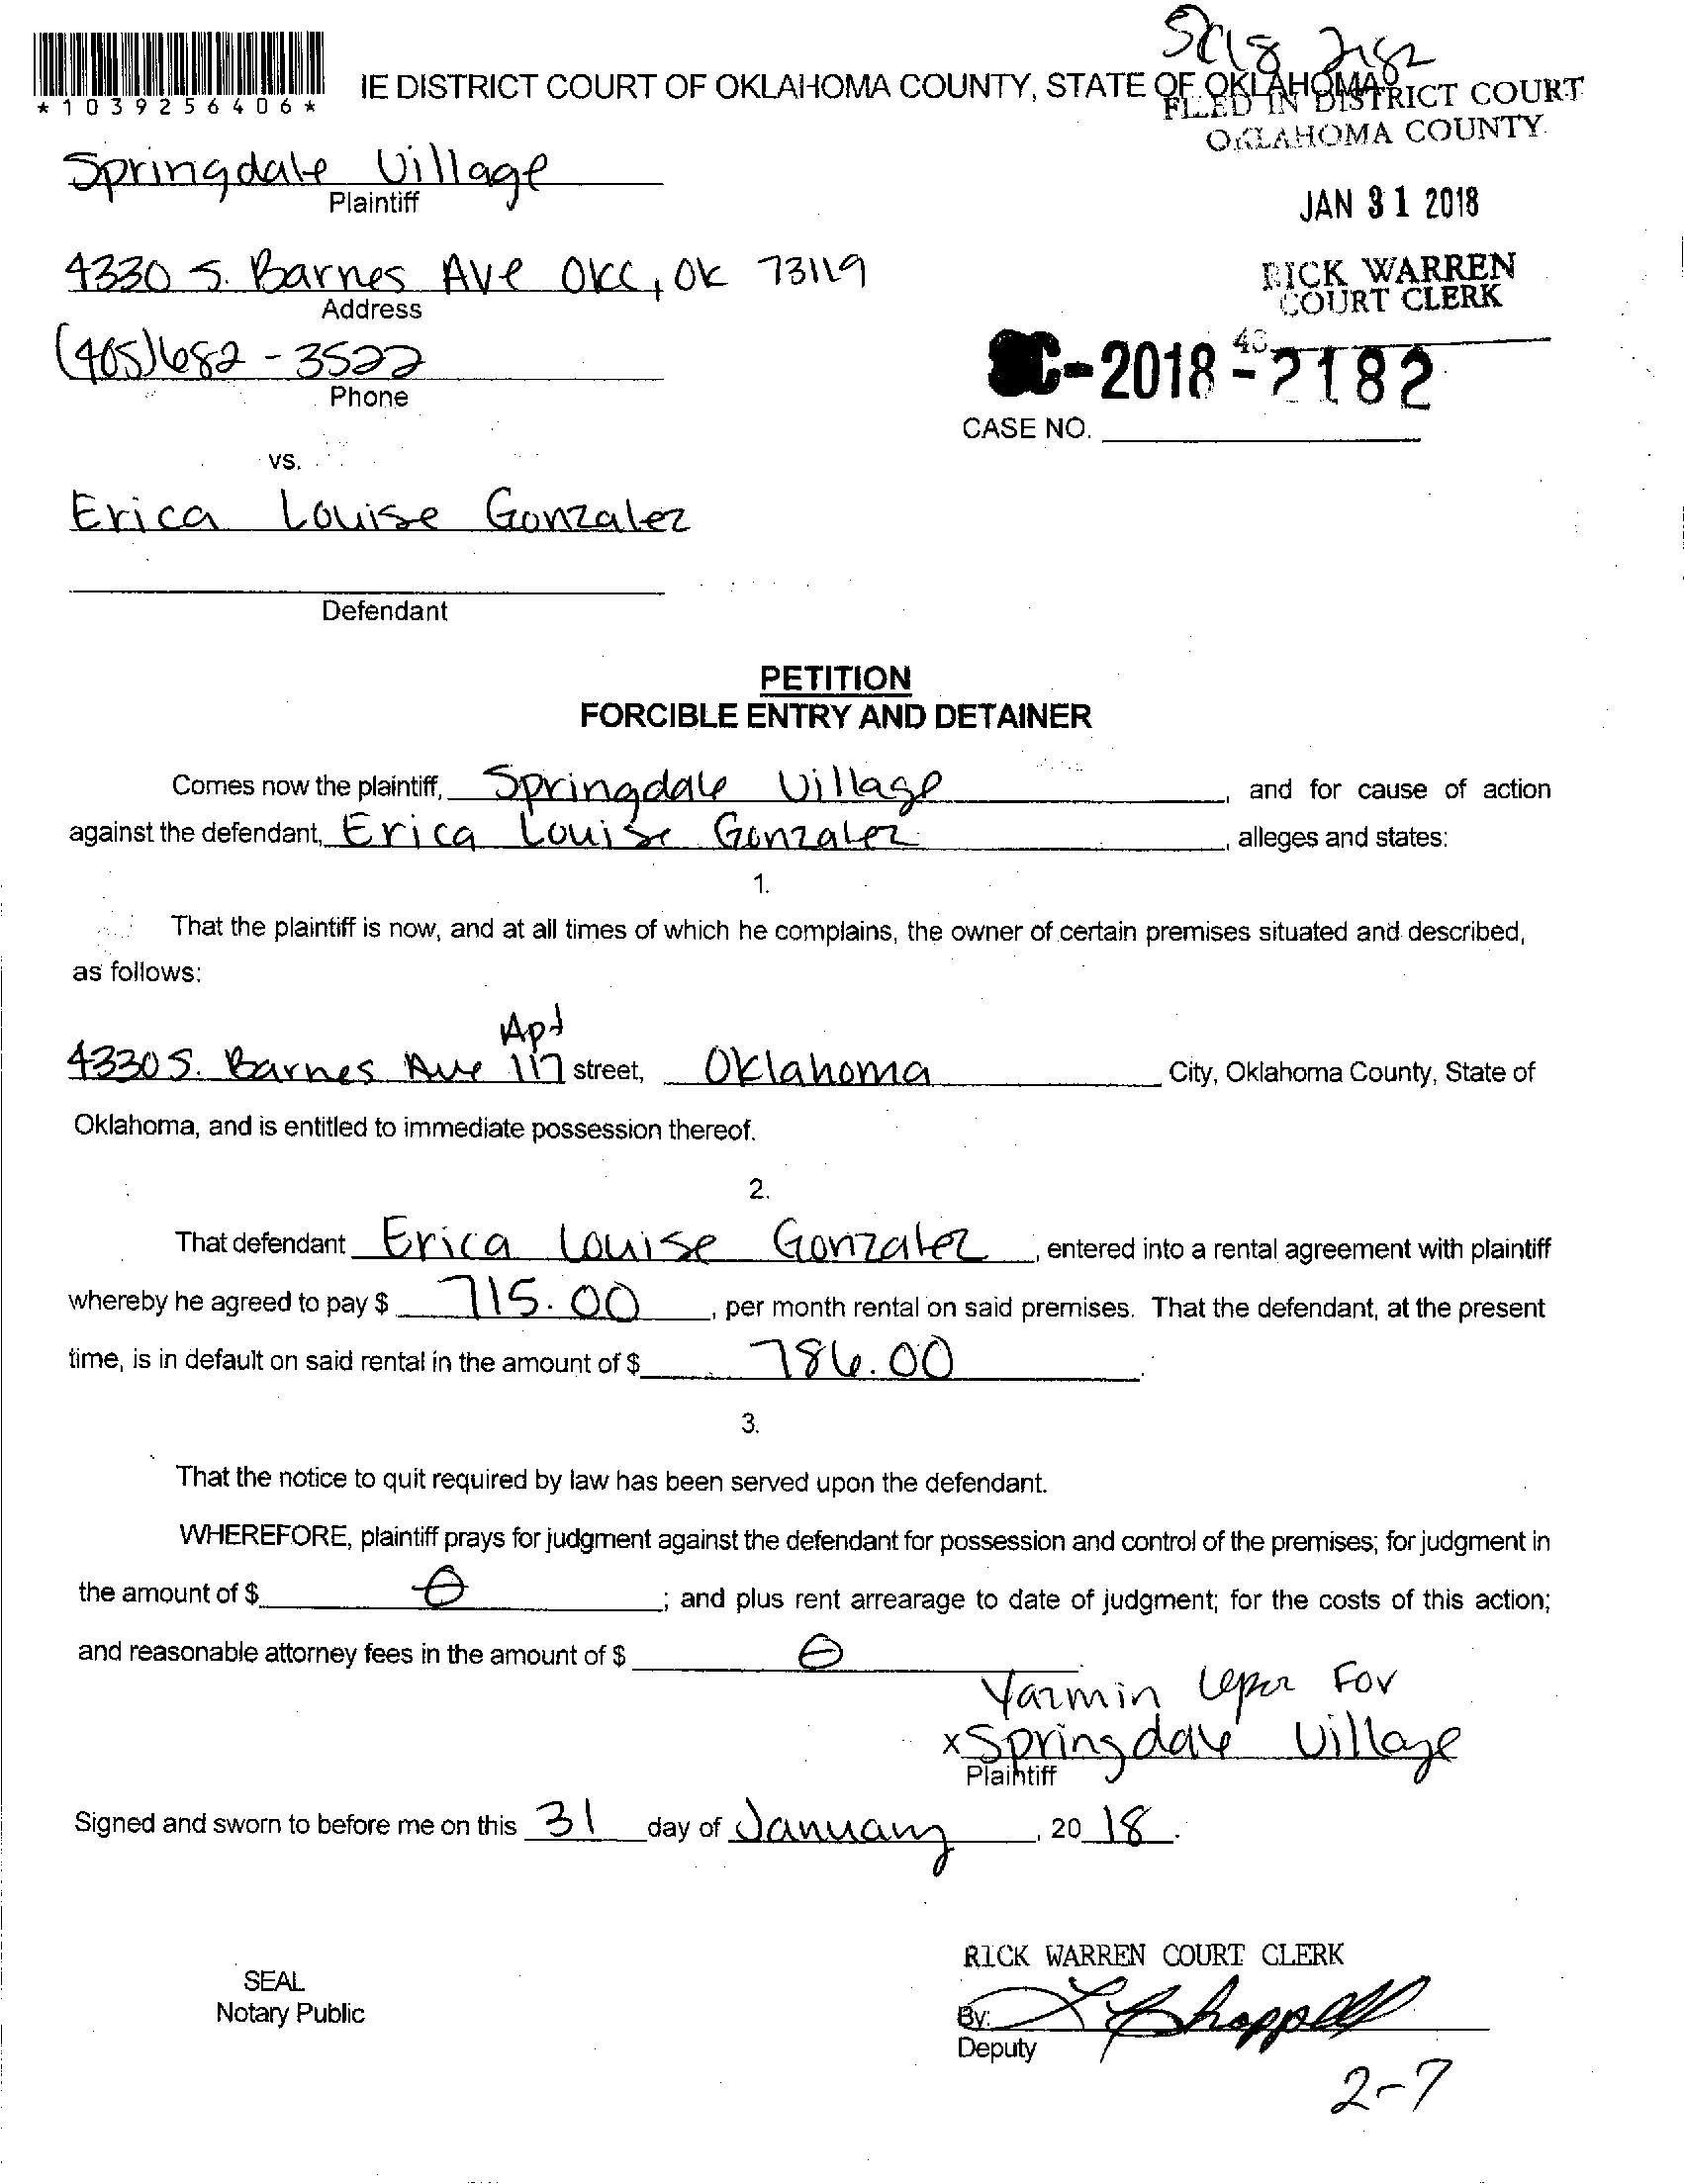 SC18 2182
IE DISTRICT COURT OF OKLAHOMA COUNTY, STATE OF OKLAHOMA
*1039256406*
FILED IN DISTRICT COURT
OKLAHOMA COUNTY
Springdale Village
Plaintiff
JAN 31 2018
4330 S. Barnes Ave OKC, OK 73119
Address
RICK WARREN
COURT CLERK
(405)682-3522
Phone
SC-2018-2182
CASE NO.
vs.
Erica Louise Gonzalez
Defendant
PETITION
FORCIBLE ENTRY AND DETAINER
Comes now the plaintiff, Springdale Village, and for cause of action
against the defendant, Erica Louise Gonzalez, alleges and states:
1.
That the plaintiff is now, and at all times of which he complains, the owner of certain premises situated and described,
as follows:
Apt
4330 S. Barnes Ave 117 street, Oklahoma City, Oklahoma County, State of
Oklahoma, and is entitled to immediate possession thereof.
2.
That defendant Erica Louise Gonzalez, entered into a rental agreement with plaintiff
whereby he agreed to pay $ 715.00, per month rental on said premises. That the defendant, at the present
time, is in default on said rental in the amount of $ 786.00.
3.
That the notice to quit required by law has been served upon the defendant.
WHEREFORE, plaintiff prays for judgment against the defendant for possession and control of the premises; for judgment in
the amount of $ 0; and plus rent arrearage to date of judgment; for the costs of this action;
and reasonable attorney fees in the amount of $ 0
Yazmin For
x Springdale Village
Plaintiff
Signed and sworn to before me on this 31 day of January, 20 18.
RICK WARREN COURT CLERK
SEAL
Notary Public
By: Chappell
Deputy
2-7